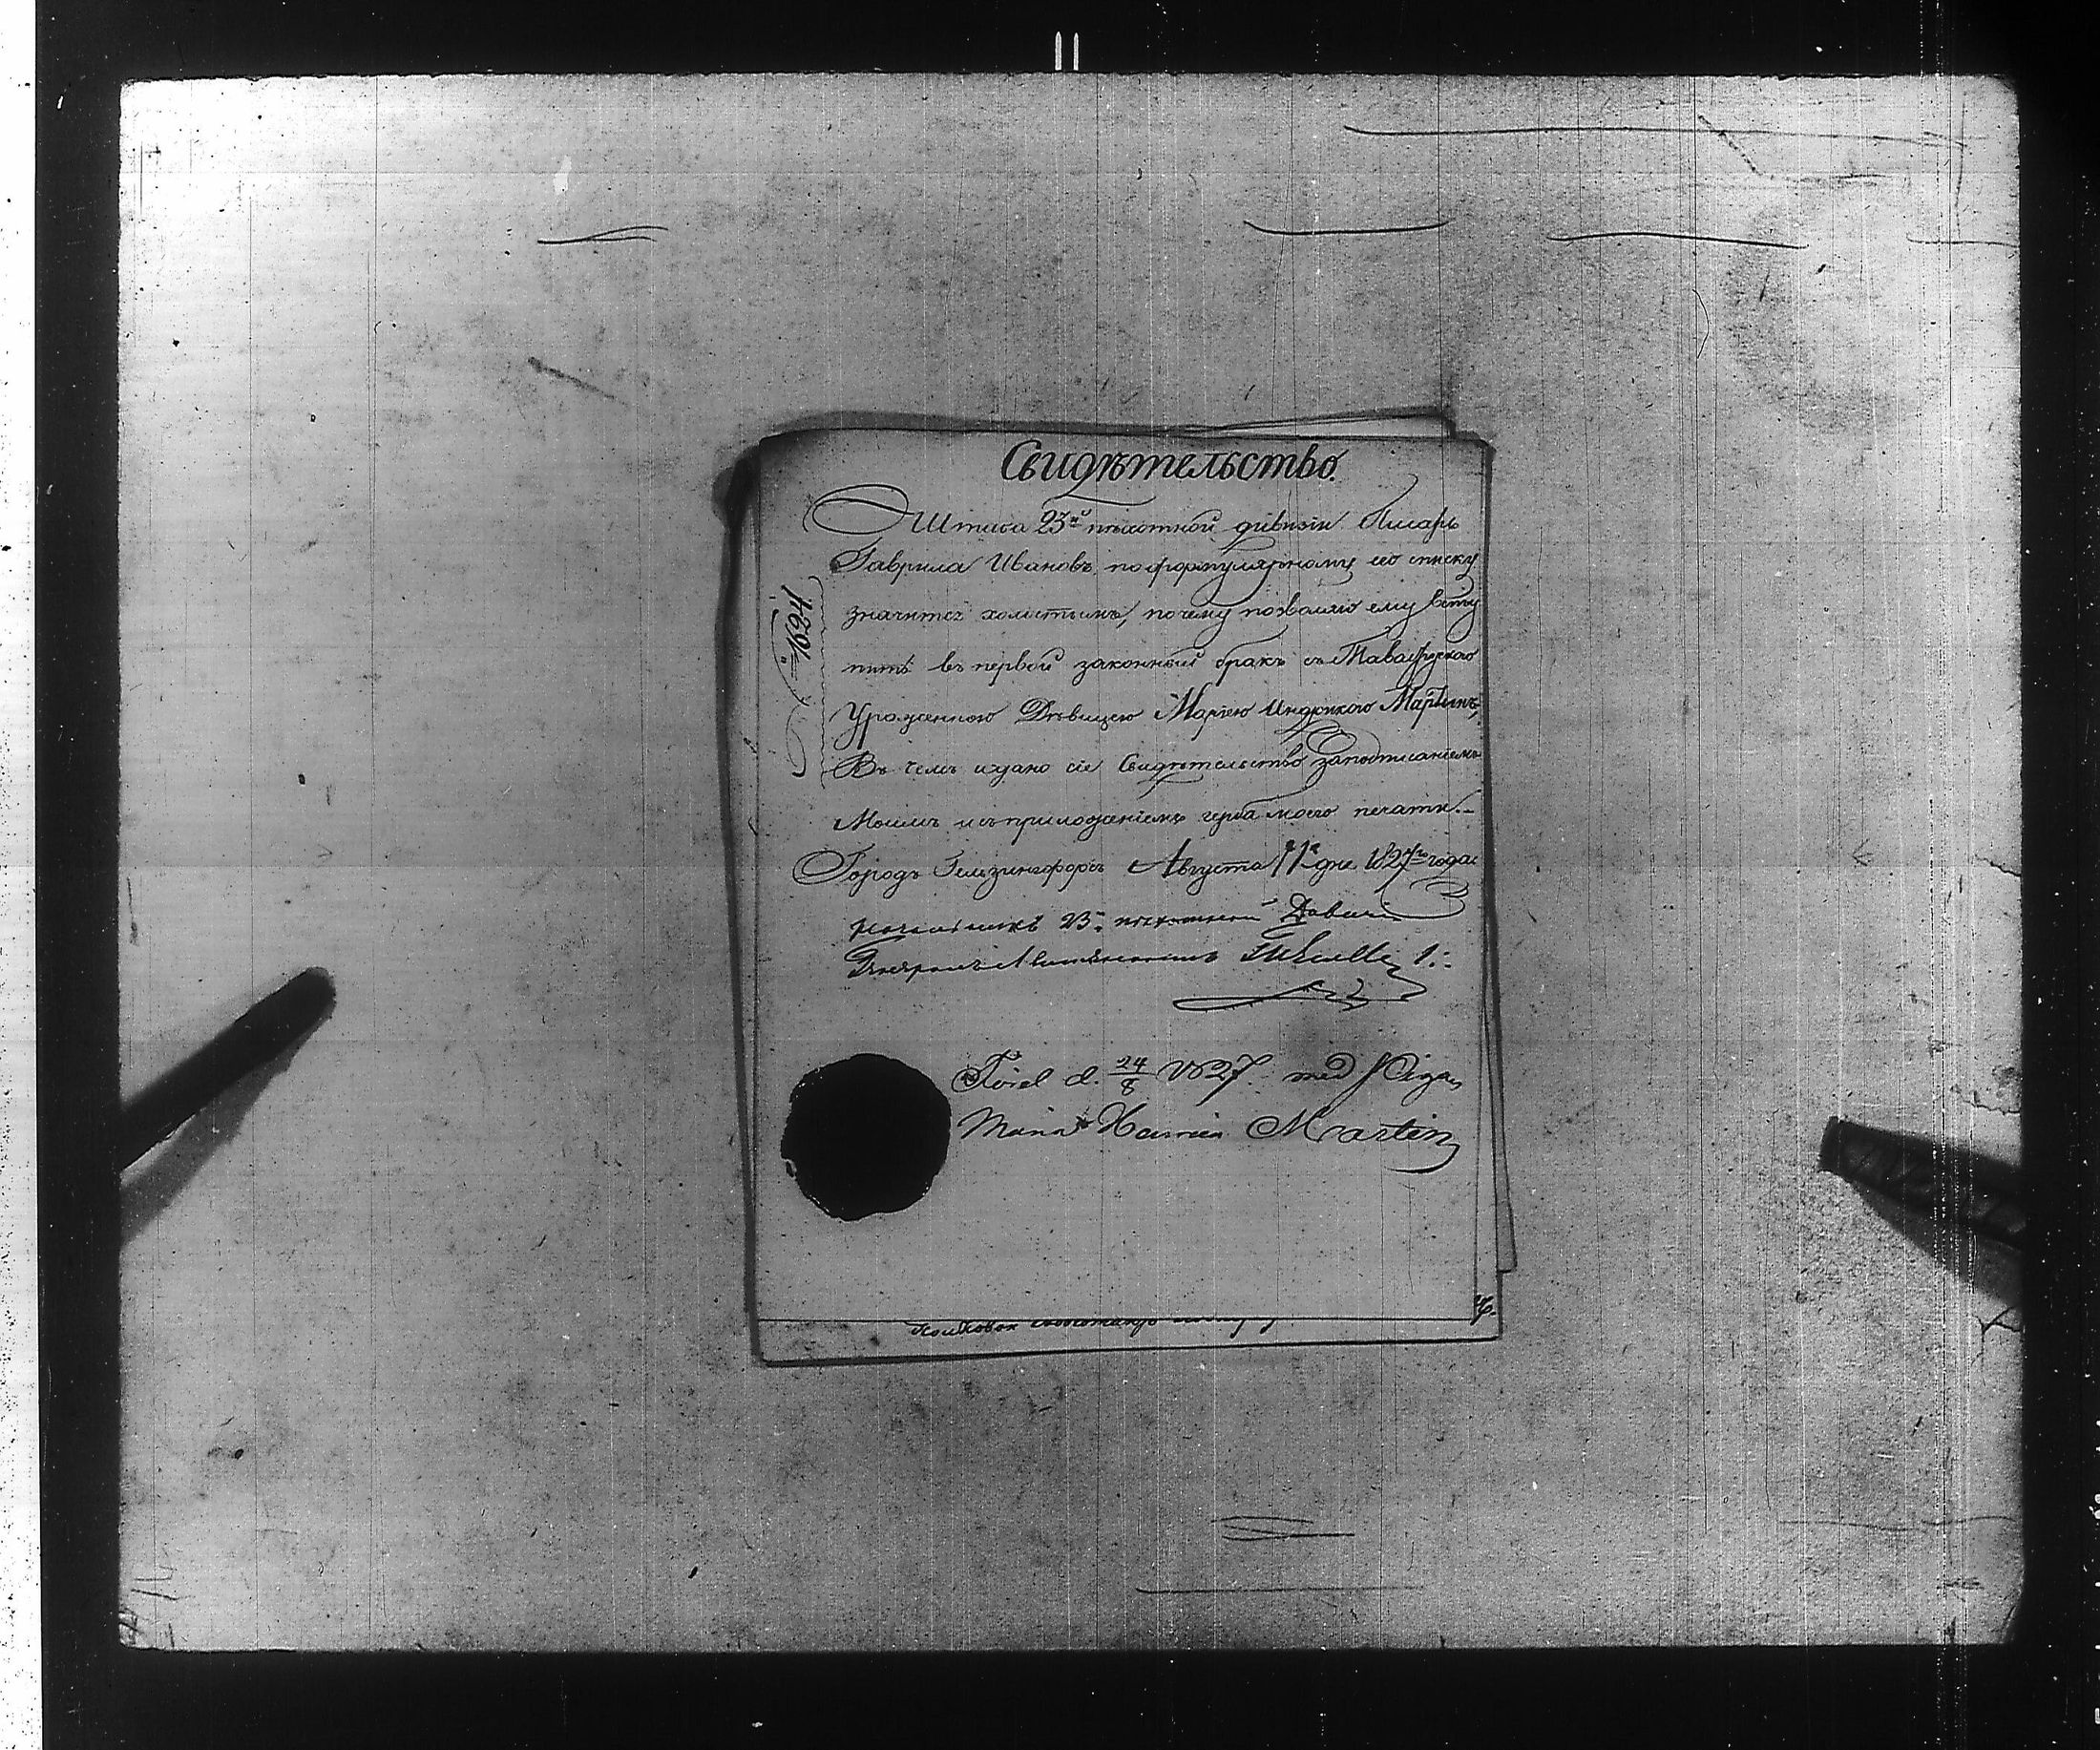 Свидѣтельство.
Штаба 23й пѣхотной дивизіи Писарь
Гаврила Ивановъ, по формулярному его списку
значится холостымъ, почему позволяю ему всту
пить въ первой законный бракъ съ
Уроженною Дѣвицею Маріею Индрикою Мартинъ,
Въ чемъ и дано сіе Свидѣтельство за подписаніемъ
Моимъ и съ приложеніемъ герба моего печати.
Городъ Гельзингфорсъ Августа 11го дня 1827го года.
Начальникъ 23й пѣхотной Дивизіи
Генералъ Лейтенантъ 1:
№ 1624
Vigd d. 24/8 1827. med Pigan
Maria Martin